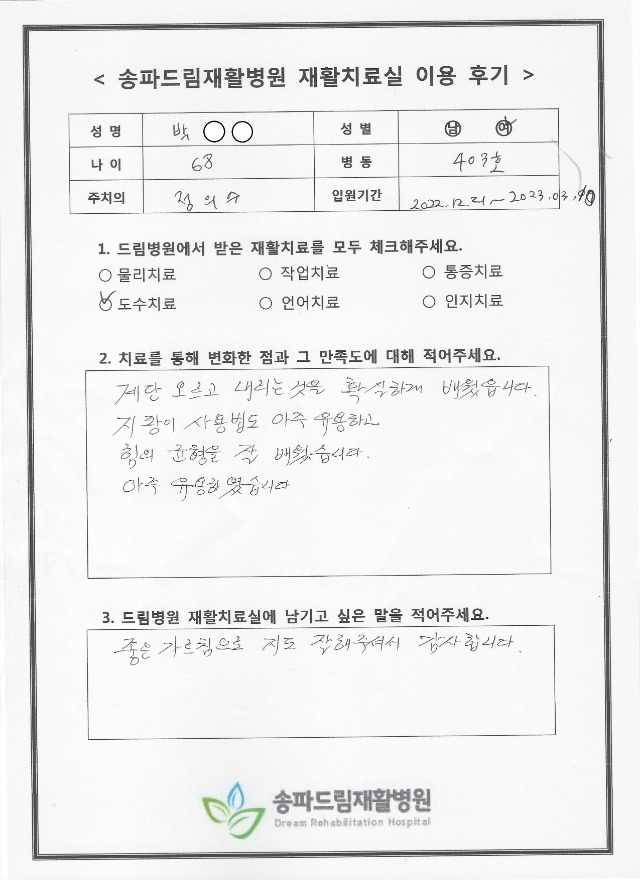 < 송파드림재활병원 재활치료실 이용 후기 >
성 명 박 ○○ 성 별 남 여
나 이 68 병 동 403호
주치의 정의 입원기간 2022.12.21~2023.03.10
1. 드림병원에서 받은 재활치료를 모두 체크해주세요.
○ 물리치료 ○ 작업치료 ○ 통증치료
○ 도수치료 ○ 언어치료 ○ 인지치료
2. 치료를 통해 변화한 점과 그 만족도에 대해 적어주세요.
계단 오르고 내리는 것을 확실하게 배웠읍니다.
지팡이 사용법도 아주 유용하고
힘의 균형을 잘 배웠습니다.
아주 유용하였습니다
3. 드림병원 재활치료실에 남기고 싶은 말을 적어주세요.
좋은 가르침으로 지도 잘해주셔서 감사합니다.
송파드림재활병원
Dream Rehabilitation Hospital